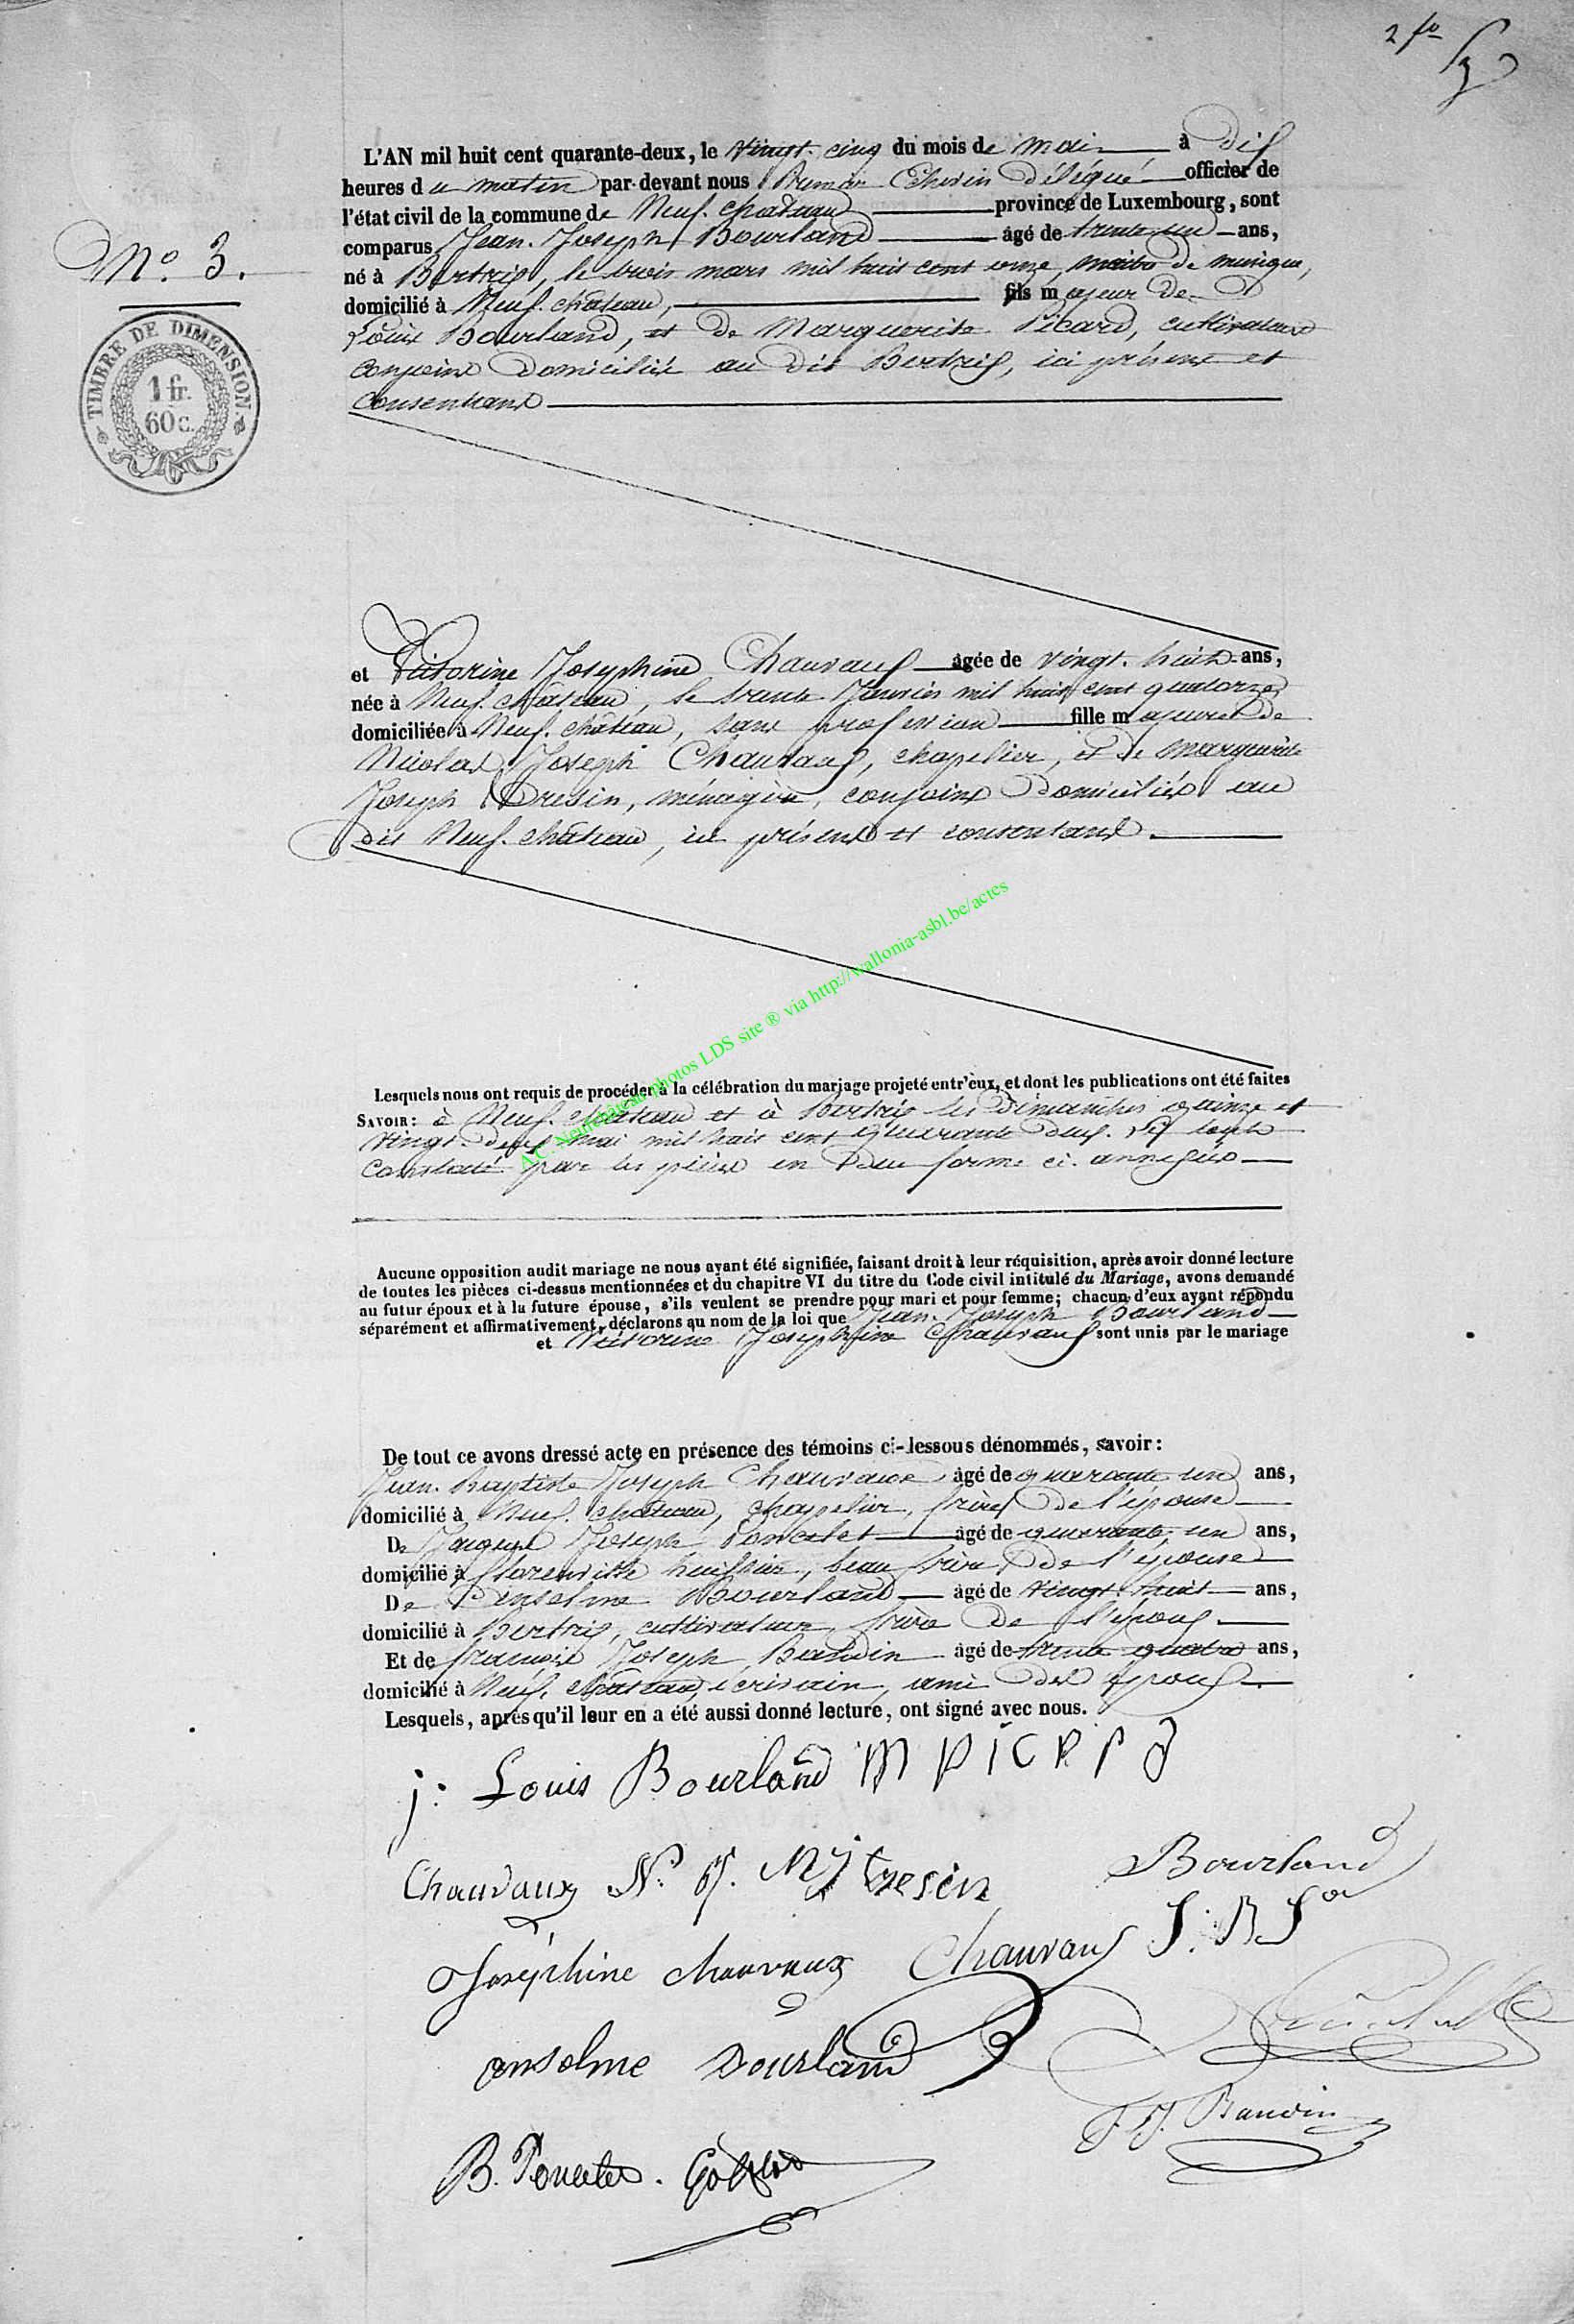 2 fo
L'AN mil huit cent quarante-deux, le Vingt-cinq du mois de mai à dix
heures du matin par-devant nous Echevin Délégué officier de
l'état civil de la commune de Neuf-château province de Luxembourg, sont
comparus Jean-Joseph Bourland âgé de trente un ans,
No 3.
né à Bertrix, le trois mars mil huit cent onze, maitre de musique,
domicilié à Neuf-château, fils majeur de
Louis Bourland, et de Marguerite Picard, cultivateurs
conjoins domiciliés au dit Bertrix, ici présens et
consentans
TIMBRE DE DIMENSION.
1 fr.
60 c.
et Victorine Josephine Chauvaux âgée de vingt-huit ans,
née à Neuf-château, le trente Janvier mil huit cent quatorze,
domiciliée à Neuf-château, sans profession fille majeure de
Nicolas Joseph Chauvaux, chapelier, et de Marguerite
Joseph Tresin, ménagère, conjoins domiciliés au
dit Neuf-château, ici présens et consentans.
A.C. Neufchâteau photos LDS site ® via http://wallonia-asbl.be/actes
Lesquels nous ont requis de procéder à la célébration du mariage projeté entr'eux, et dont les publications ont été faites
SAVOIR: à Neuf-château et à Bertrix les dimanches quinze et
vingt-deux mai mil huit cent quarante deux
constaté par les pièces en due forme ci-annexées
Aucune opposition audit mariage ne nous ayant été signifiée, faisant droit à leur réquisition, après avoir donné lecture
de toutes les pièces ci-dessus mentionnées et du chapitre VI du titre du Code civil intitulé du Mariage, avons demandé
au futur époux et à la future épouse, s'ils veulent se prendre pour mari et pour femme; chacun d'eux ayant répondu
séparément et affirmativement, déclarons au nom de la loi que Jean-Joseph Bourland
et Victorine Josephine Chauvaux sont unis par le mariage
De tout ce avons dressé acte en présence des témoins ci-dessous dénommés, savoir:
Jean-Baptiste Joseph Chauvaux âgé de quarante-un ans,
domicilié à Neuf-château, chapelier, frère de l'épouse
De Jacques Joseph Poncelet âgé de quarante-un ans,
domicilié à florenville huissier, beau frère de l'épouse
De Anselme Bourland âgé de vingt-huit ans,
domicilié à Bertrix, cultivateur, frère de l'époux
Et de françois Joseph Baudin âgé de trente quatre ans,
domicilié à Neuf-château, écrivain, ami des époux
Lesquels, après qu'il leur en a été aussi donné lecture, ont signé avec nous.
j: Louis Bourland M PICAPD
Chauvaux N. J. M J tresin Bourland
Joséphine chauvaux Chauvaux J. B J
anselme Bourland
F. J. Baudin
B. Poncelet.